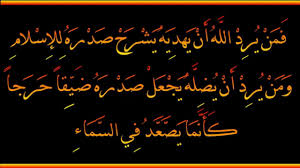 فَمَنْ يُرِدْ اللَّهُ أَنْ يَهْدِيَهُ يَشْرَحْ صَدْرَهُ لِلإِسْلامِ
وَمَنْ يُرِدْ أَنْ يُضِلَّهُ يَجْعَلْ صَدْرَهُ ضَيِّقاً حَرَجاً
كَأَنَّمَا يَصَّعَّدُ فِي السَّمَاءِ